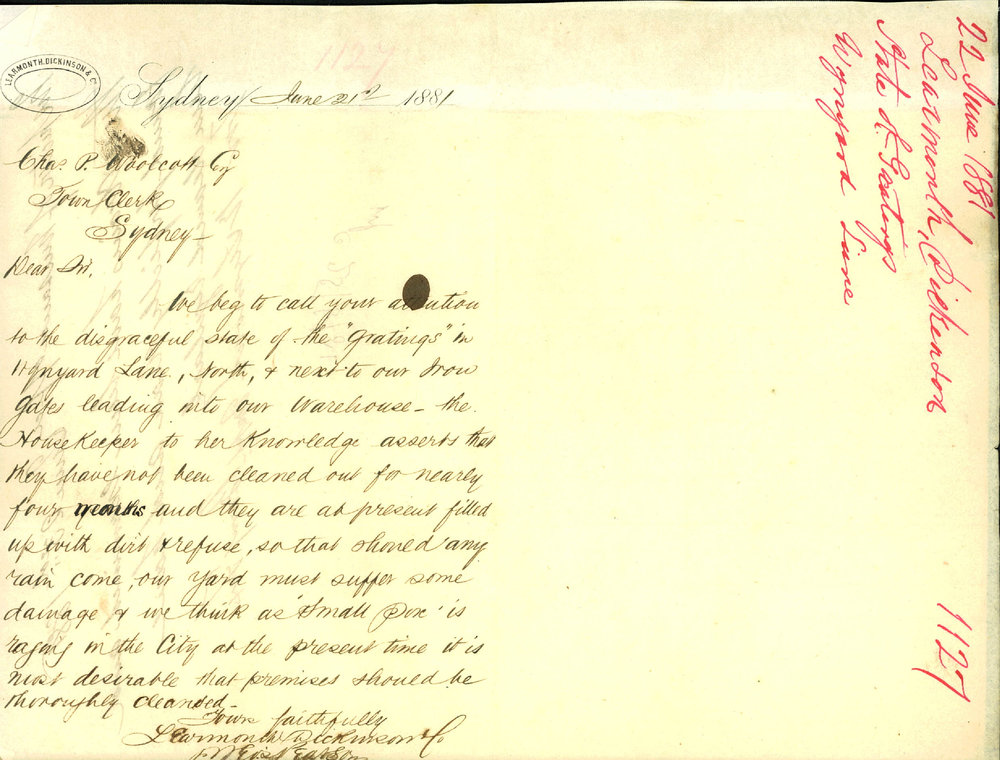 LEARMONTH, DICKINSON & Co
1127
Sydney June 21st 1881
Chas. P. Woolcott Esq
Town Clerk
Sydney—
Dear Sir,
We beg to call your attention
to the disgraceful state of the "Gratings" in
Wynyard Lane, North, & next to our Iron
Gates leading into our Warehouse— the
HouseKeeper to her Knowledge asserts that
they have not been cleaned out for nearly
four months and they are at present filled
up with dirt & refuse, so that should any
rain come, our yard must suffer some
damage & we think as 'Small Pox' is
raging in the City at the present time it is
most desirable that premises should be
thoroughly cleansed—
Yours faithfully
Learmonth Dickinson & Co
22 June 1881
Learmonth, Dickenson
State of Gratings
Wynyard Lane
1127